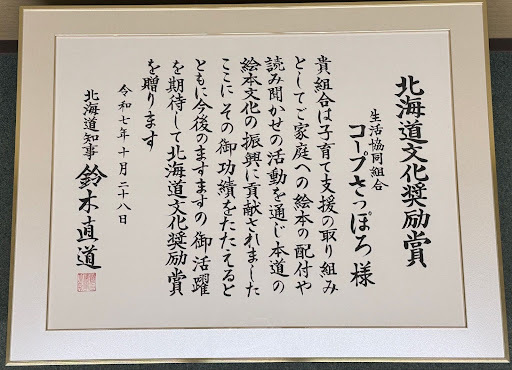 北海道文化奨励賞
生活協同組合
コープさっぽろ 様
貴組合は子育て支援の取り組み
としてご家庭への絵本の配付や
読み聞かせの活動を通じ本道の
絵本文化の振興に貢献されました
ここに その御功績をたたえると
ともに今後のますますの御活躍
を期待して北海道文化奨励賞
を贈ります
令和七年十月二十八日
北海道知事 鈴木直道